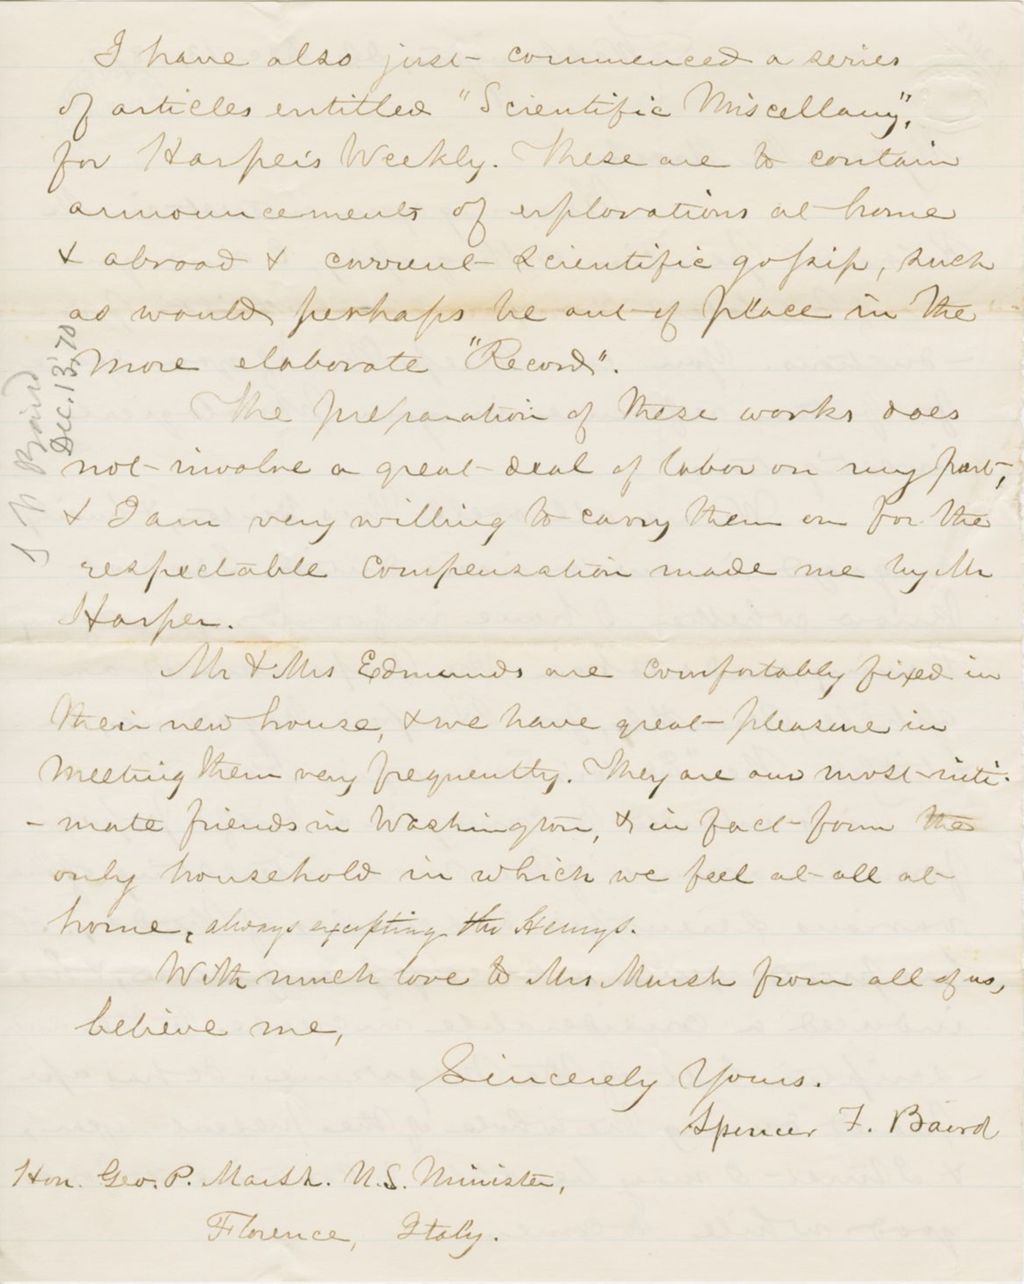 I have also just commenced a series
of articles entitled "Scientific Miscellany",
for Harper's Weekly. These are to contain
announcements of explorations at home
& abroad & current scientific gossip, such
as would perhaps be out of place in the
more elaborate "Record".
The preparation of these works does
not involve a great deal of labor on my part,
& I am very willing to carry them on for the
respectable compensation made me by Mr
Harper.
Mr & Mrs Edmunds are comfortably fixed in
their new house, & we have great pleasure in
meeting them very frequently. They are our most inti-
-mate friends in Washington, & in fact form the
only household in which we feel at all at
home, always excepting the Henrys.
With much love to Mrs Marsh from all of us,
believe me,
Sincerely Yours.
Spencer F. Baird
Hon. Geo. P. Marsh. U.S. Minister,
Florence, Italy.
Baird
Dec. 13, '70